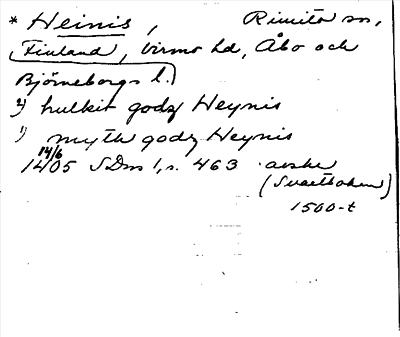 * Heinis, Rimito sn,
Finland, Virmo hd, Åbo och
Björneborgs l.
2) hulkit godz Heynis
1) myth godz Heynis
14/6
1405 SDns 1, s. 463 avskr
(Svartboken)
1500-t